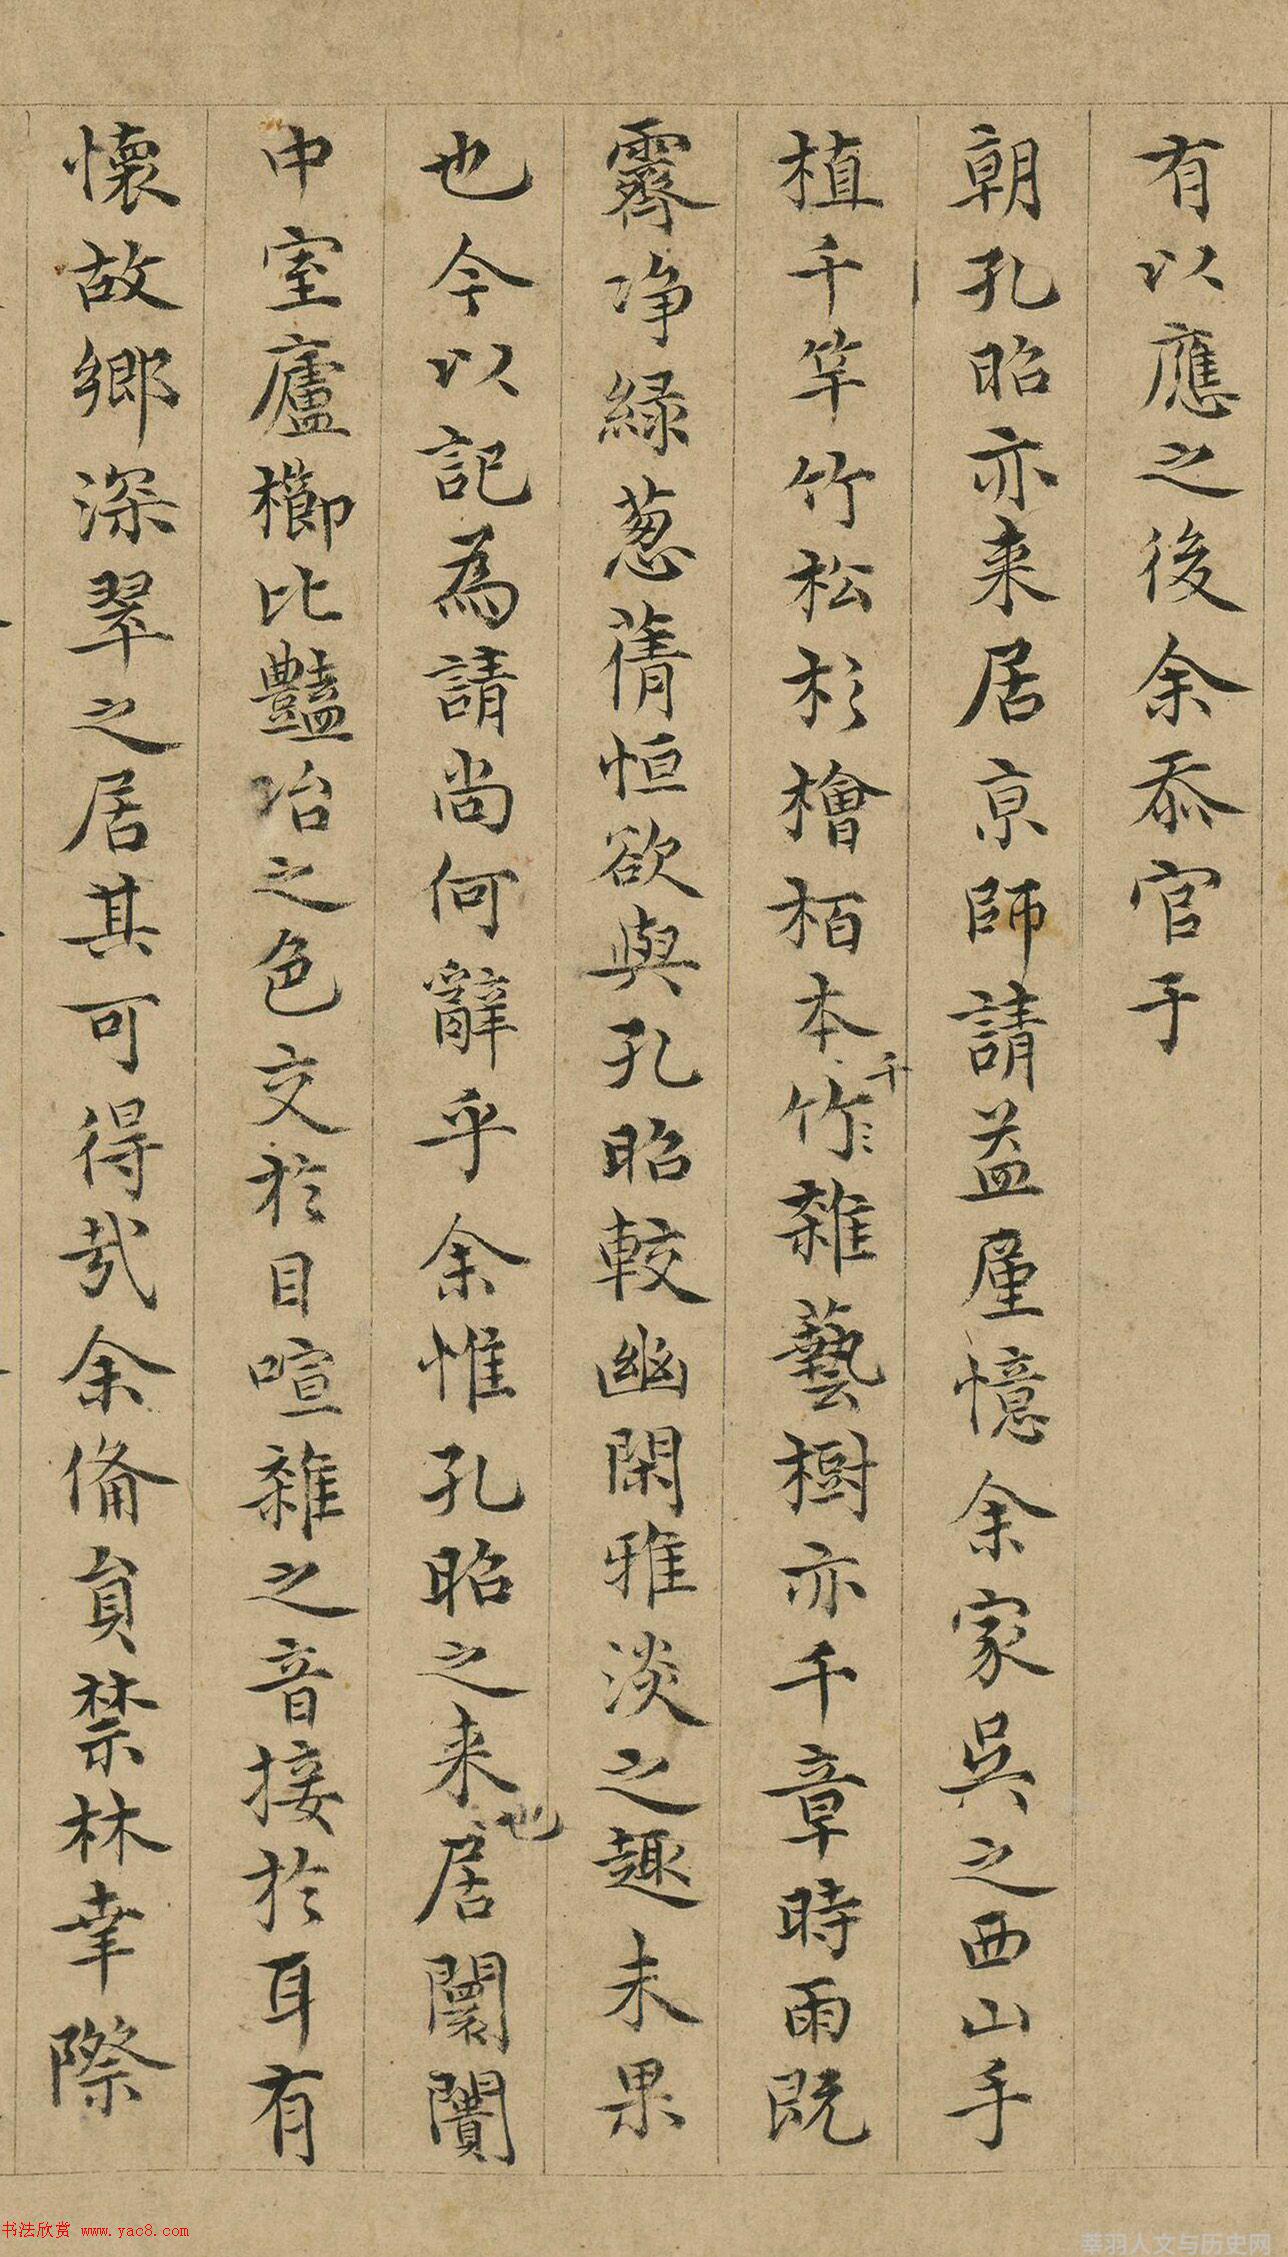 有以應之後余忝官于
朝孔昭亦来居京師請益厪憶余家吳之西山手
植千竿竹松杉檜栢本千竹〻雜藝樹亦千章時雨既
霽净緑葱蒨恒欲與孔昭較幽閑雅淡之趣未果
也今以記為請尚何辭乎余惟孔昭之来也居闤闠
中室廬櫛比豔冶之色交於目喧雜之音接於耳有
懷故鄉深翠之居其可得㢤余備員禁林幸際
书法欣赏 www.yac8.com
莘羽人文与历史网